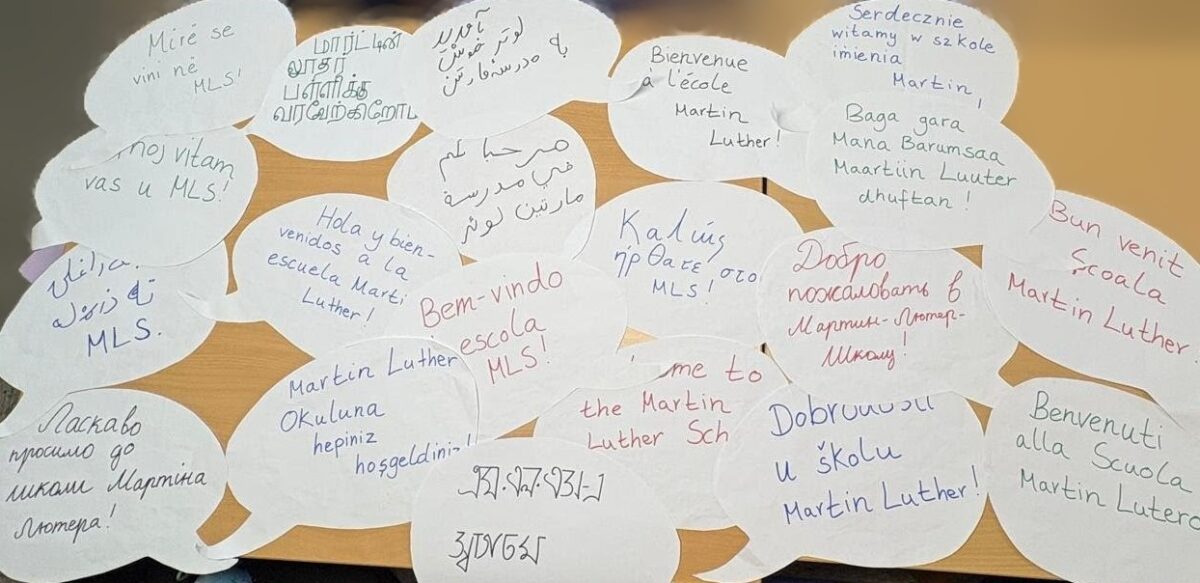 Mirë se
vini në
MLS!
மார்ட்டின்
லூதர்
பள்ளிக்கு
வரவேற்கிறோ
آمدید
لوتر خوش
به مدرسه مارتین
Bienvenue
à l'école
Martin
Luther!
Serdecznie
witamy w szkole
imienia
Martin
vitam
vas u MLS!
مرحبا بكم
في مدرسة
مارتن لوثر
Baga gara
Mana Barumsaa
Maartiin Luuter
dhuftan!
Hola y bien-
venidos a la
escuela Marti
Luther!
Καλώς
ήρθατε στο
MLS!
Bun venit
Școala
Martin Luther
MLS.
Bem-vindo
escola
MLS!
Добро
пожаловать в
Мартин-Лютер-
Школу!
Martin Luther
Okuluna
hepiniz
hoşgeldini
me to
the Martin
Luther Sch
Ласкаво
просимо до
школи Мартіна
Лютера!
u školu
Martin Luther!
Benvenuti
alla Scuola
Martin Lutero